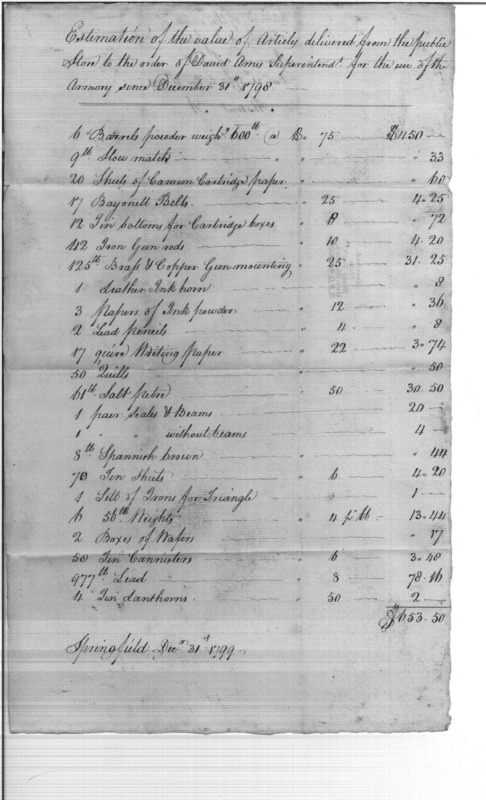 Estimation of the value of Articles delivered from the public
Store to the order of David Ames Superintendt. for the use of the
Armory since December 31st 1798
6 Barrels powder weighg. 600lb @ $. 75 $450 —
9lb Slow match " 33
20 Sheets of Cannon Cartridge paper " 60
17 Bayonett Belts " 25 4. 25
12 Tin bottoms for Cartridge boxes " 6 " 72
42 Iron Gun rods " 10 4. 20
125lb Brass & Copper Gun mounting " 25 31. 25
1 Leather Ink horn " 8
3 Papers of Ink powder " 12 " 36
2 Lead Pencils " 4 " 8
17 quire Writing Paper " 22 3. 74
50 Quills " 50
61lb Salt petre " 50 30. 50
1 pair Scales & Beams 20 —
1 " " without beams 4 —
8lb Spannish brown " 44
70 Tin Sheets " 6 4. 20
1 Sett of Irons for Triangle " 1 —
6 56lb Weights " 4 pr lb 13. 44
2 Boxes of Wafers " 17
58 Tin Cannisters " 6 3. 48
977lb Lead " 8 78. 16
4 Tin Lanthorns " 50 2 —
$653. 50
Springfield Decr. 31st 1799